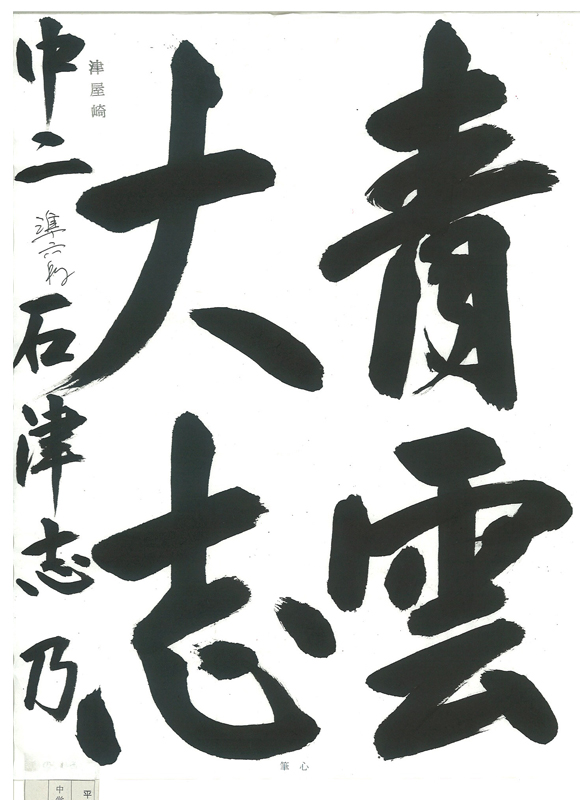 青雲
大志
津屋崎
中二 準六段 石津志乃
心筆
平
中学